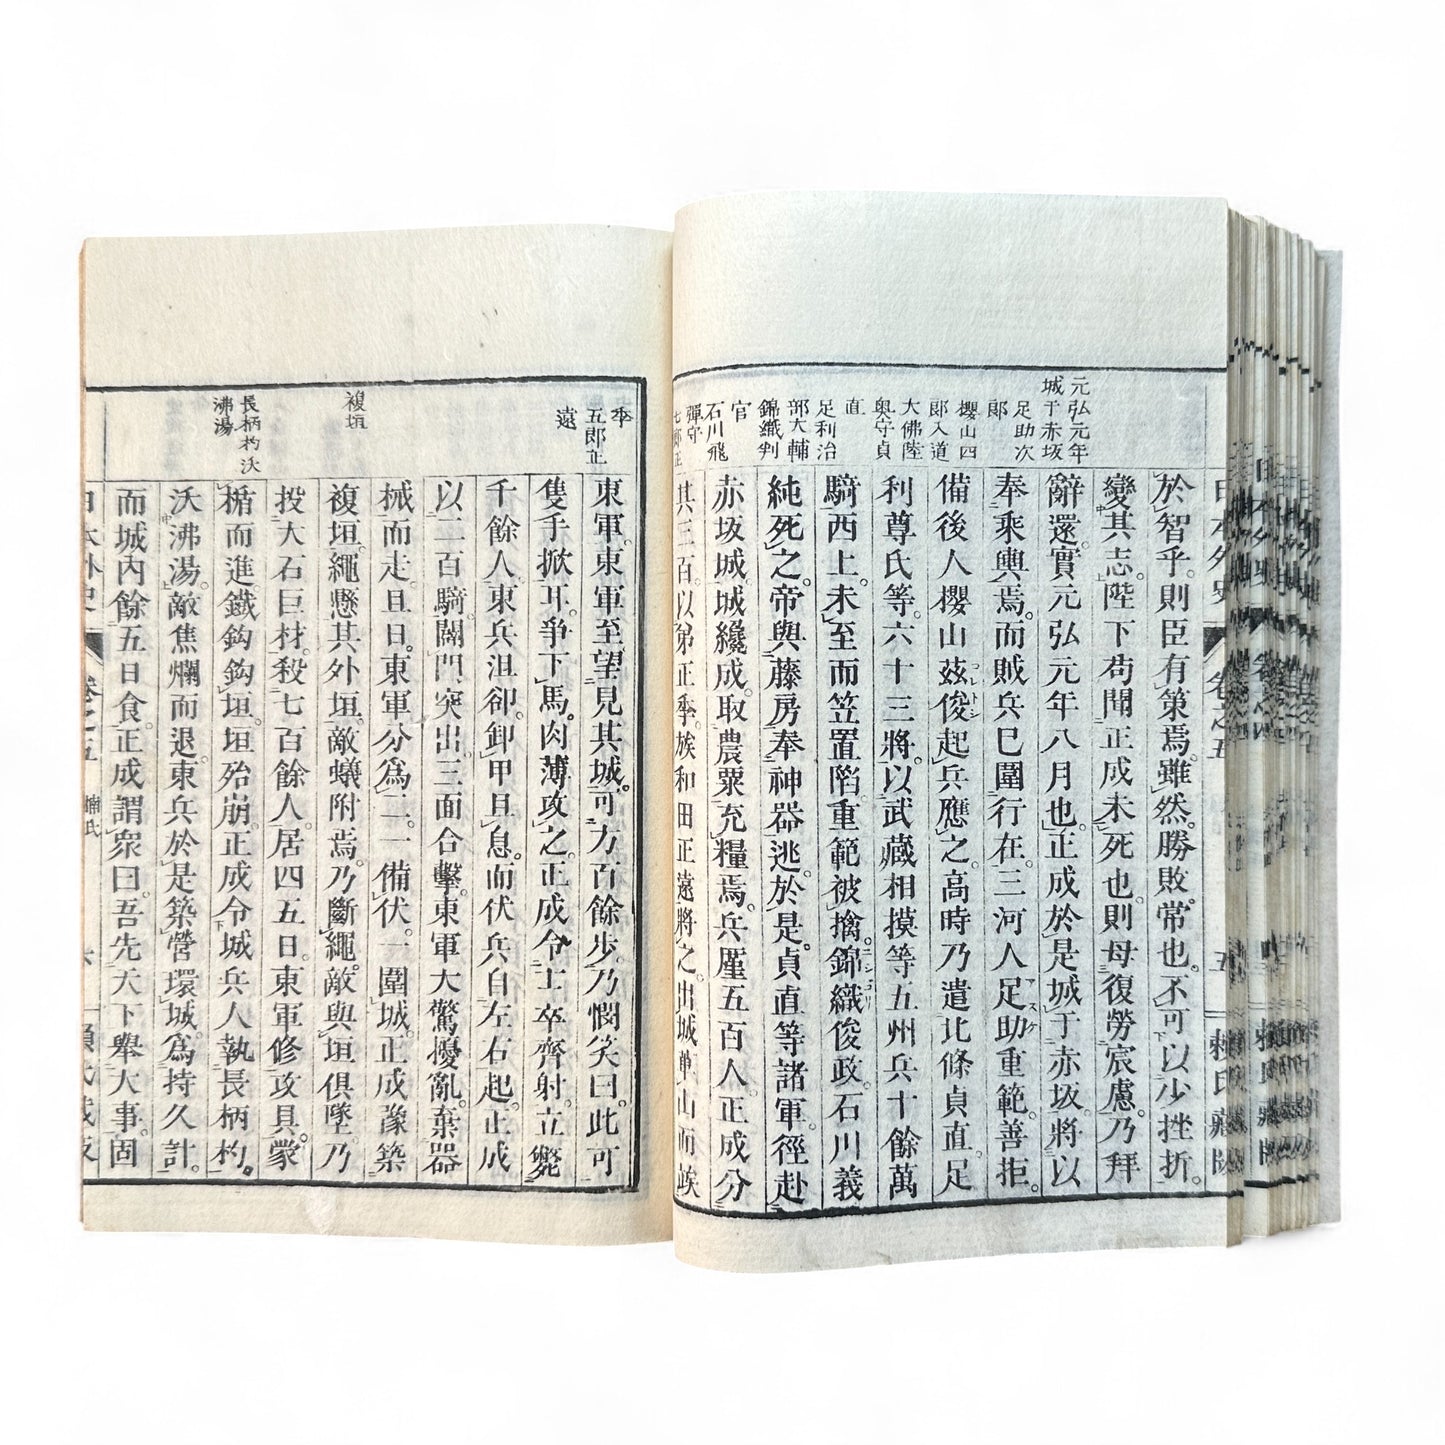 元弘元年
城于赤坂
足助次
郞
櫻山四
郞入道
大佛陸
奥守貞
直
足利治
部大輔
錦織判
官
石川飛
彈守
七郞正
於智乎則臣有策焉。雖然。勝敗常也。不可以少挫折。
變其志。陛下苟聞正成未死也。則毋復勞宸慮。乃拜
辭還。實元弘元年八月也。正成於是城于赤坂。將以
奉乘輿焉。而賊兵已圍行在。三河人足助重範。善拒。
備後人櫻山茲俊起兵應之。高時乃遣北條貞直。足
利尊氏等。六十三將。以武藏相摸等五州兵十餘萬
騎西上。未至而笠置陷。重範被擒。錦織俊政。石川義
純死之。帝與藤房奉神器逃。於是。貞直等諸軍。徑赴
赤坂城。城纔成。取農粟充糧焉。兵厪五百人。正成分
其三百。以弟正季。族和田正遠將之。出城單山而竢
日本外史
卷之五
五
賴氏藏版
季
五郞正
遠
複垣
長柄杓沃
沸湯
東軍。東軍至望見其城。可方百餘步。乃憫笑曰。此可
隻手掀耳。爭下馬。肉薄攻之。正成令士卒齊射。立斃
千餘人。東兵沮卻。卸甲且息。而伏兵自左右起。正成
以二百騎。闢門突出。三面合擊。東軍大驚擾亂。棄器
械而走。旦日。東軍分爲二。一備伏。一圍城。正成豫築
複垣。繩懸其外垣。敵蟻附焉。乃斷繩。敵與垣俱墜。乃
投大石巨材。殺七百餘人。居四五日。東軍修攻具。蒙
楯而進。鐵鉤鉤垣。垣殆崩。正成令城兵人執長柄杓。
沃沸湯。敵焦爛而退。東兵於是築營環城。爲持久計。
而城內餘五日食。正成謂衆曰。吾先天下舉大事。固
日本外史
卷之五
楠氏
六
賴氏藏版